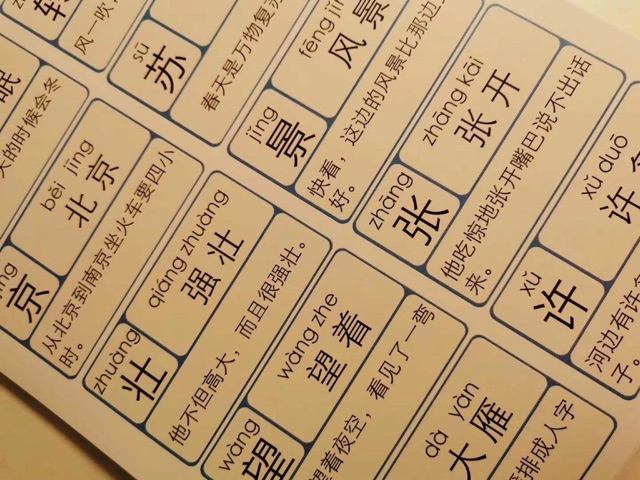 风一吹，
sū
苏
春天是万物复苏
fēng jǐng
风景
jǐng
景
快看，这边的风景比那边
好。
zhāng kāi
张开
zhāng
张
他吃惊地张开嘴巴说不出话
来。
xǔ duō
许
xǔ
许
河边有许
子。
天的时候会冬
běi jīng
北京
京
从北京到南京坐火车要四小
时。
qiáng zhuàng
强壮
zhuàng
壮
他不但高大，而且很强壮。
wàng zhe
望着
wàng
望
望着夜空，看见了一弯
dà yàn
大雁
排成人字